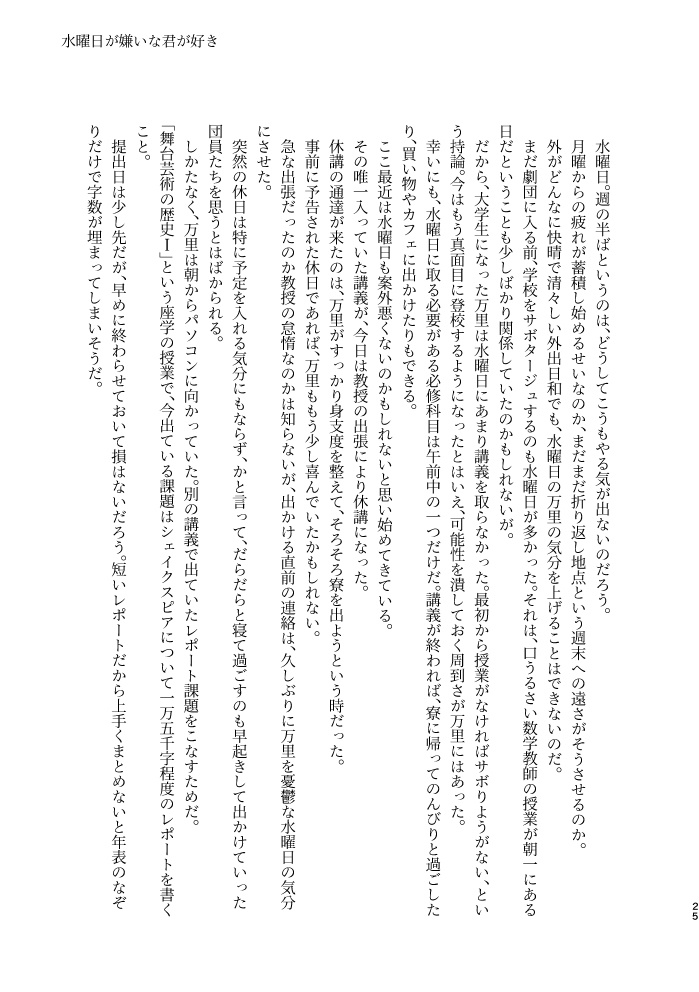 水曜日が嫌いな君が好き
水曜日。週の半ばというのは、どうしてこうもやる気が出ないのだろう。
月曜からの疲れが蓄積し始めるせいなのか、まだまだ折り返し地点という週末への遠さがそうさせるのか。
外がどんなに快晴で清々しい外出日和でも、水曜日の万里の気分を上げることはできないのだ。
まだ劇団に入る前、学校をサボタージュするのも水曜日が多かった。それは、口うるさい数学教師の授業が朝一にある
日だということも少しばかり関係していたのかもしれないが。
だから、大学生になった万里は水曜日にあまり講義を取らなかった。最初から授業がなければサボりようがない、とい
う持論。今はもう真面目に登校するようになったとはいえ、可能性を潰しておく周到さが万里にはあった。
幸いにも、水曜日に取る必要がある必修科目は午前中の一つだけだ。講義が終われば、寮に帰ってのんびりと過ごした
り、買い物やカフェに出かけたりもできる。
ここ最近は水曜日も案外悪くないのかもしれないと思い始めてきている。
その唯一入っていた講義が、今日は教授の出張により休講になった。
休講の通達が来たのは、万里がすっかり身支度を整えて、そろそろ寮を出ようという時だった。
事前に予告された休日であれば、万里ももう少し喜んでいたかもしれない。
急な出張だったのか教授の怠惰なのかは知らないが、出かける直前の連絡は、久しぶりに万里を憂鬱な水曜日の気分
にさせた。
突然の休日は特に予定を入れる気分にもならず、かと言って、だらだらと寝て過ごすのも早起きして出かけていった
団員たちを思うとはばかられる。
しかたなく、万里は朝からパソコンに向かっていた。別の講義で出ていたレポート課題をこなすためだ。
「舞台芸術の歴史Ⅰ」という座学の授業で、今出ている課題はシェイクスピアについて一万五千字程度のレポートを書く
こと。
提出日は少し先だが、早めに終わらせておいて損はないだろう。短いレポートだから上手くまとめないと年表のなぞ
りだけで字数が埋まってしまいそうだ。
25